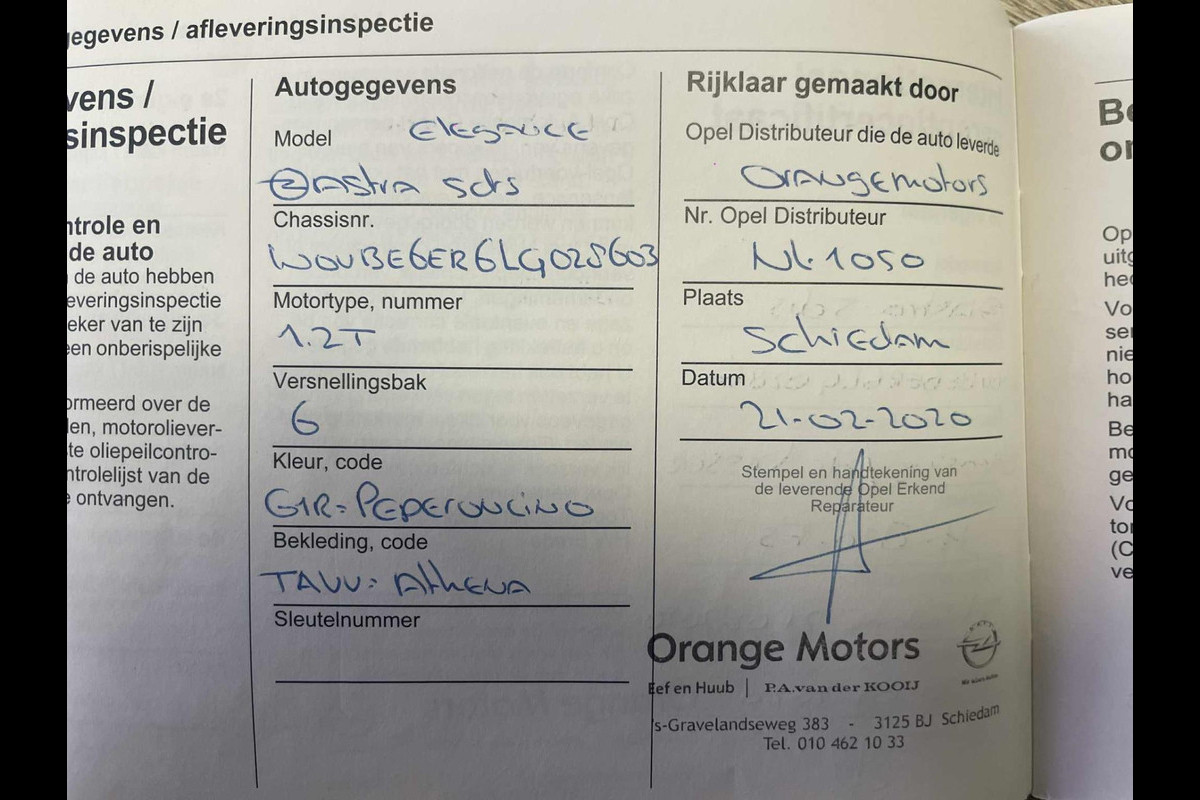 egevens / afleveringsinspectie
vens /
sinspectie
ntrole en
de auto
de auto hebben
everingsinspectie
eker van te zijn
een onberispelijke
ormeerd over de
len, motoroliever-
te oliepeilcontro-
ntrolelijst van de
ontvangen.
Autogegevens
Model Elegance
Astra sdrs
Chassisnr.
W0VBE6ER6LG025603
Motortype, nummer
1.2T
Versnellingsbak
6
Kleur, code
G1R=Peperoncino
Bekleding, code
TAVV= Athena
Sleutelnummer
Rijklaar gemaakt door
Opel Distributeur die de auto leverde
Orangemotors
Nr. Opel Distributeur
NL.1050
Plaats
Schiedam
Datum
21-02-2020
Stempel en handtekening van
de leverende Opel Erkend
Reparateur
Orange Motors
Eef en Huub | P.A.van der KOOIJ
's-Gravelandseweg 383 - 3125 BJ Schiedam
Tel. 010 462 10 33
Be
on
Op
uitg
hee
Vo
ser
nie
ho
ha
Be
mo
ge
Vo
tor
(C
ve